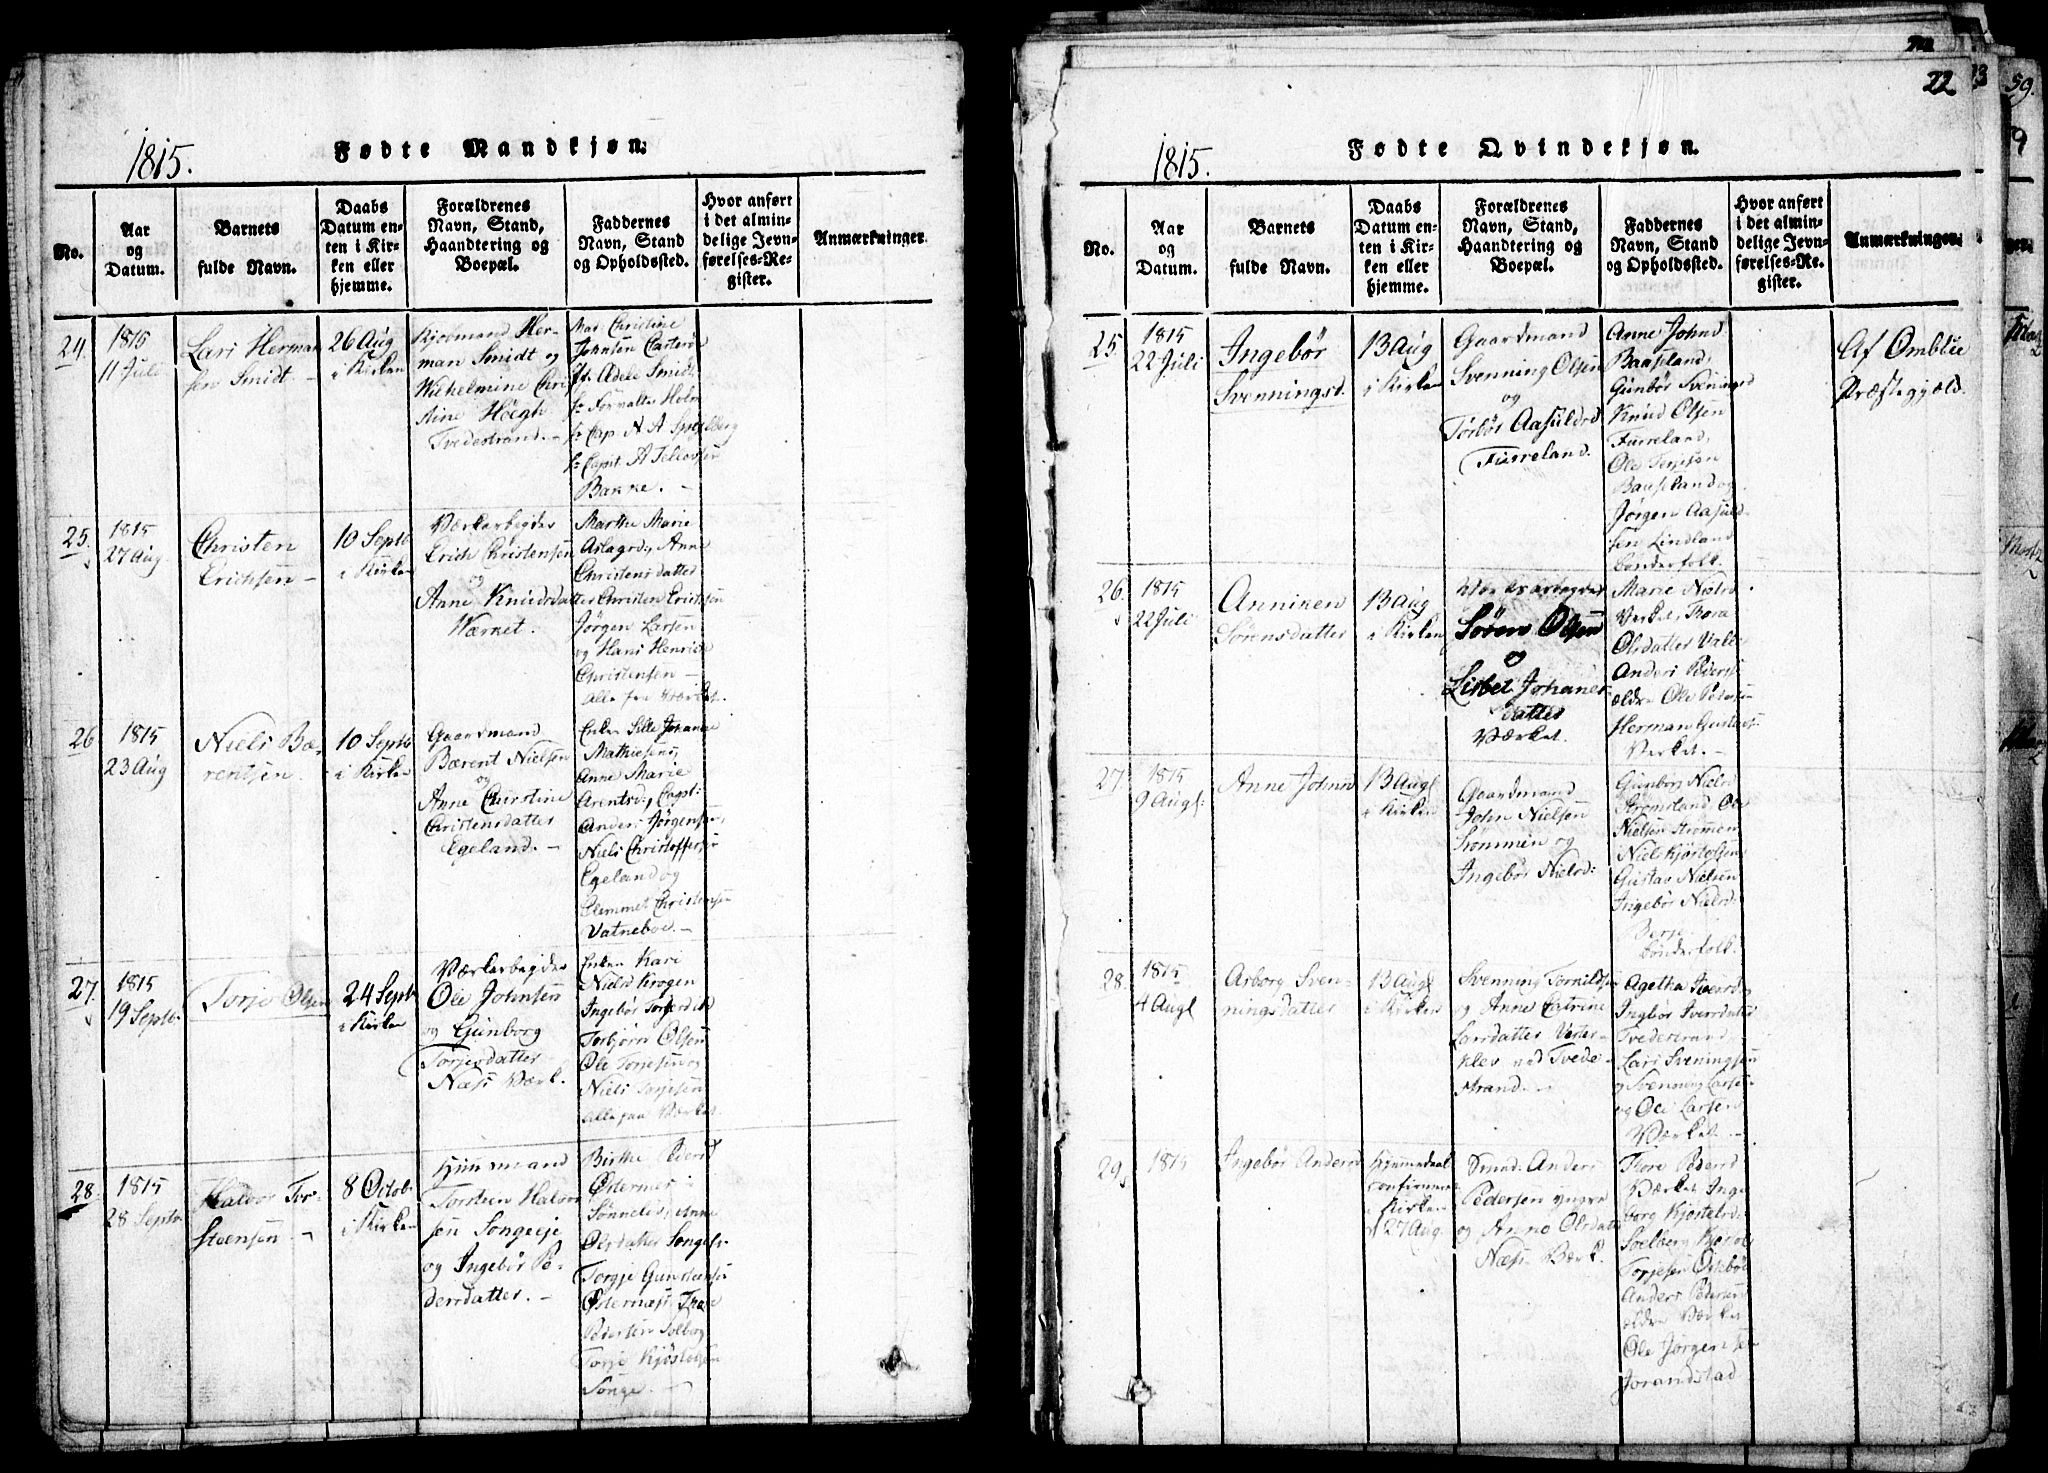 1815.
Fødte Mandkjøn.
No.
Aar
og
Datum.
Barnets
fulde Navn.
Daabs
Datum en-
ten i Kir-
ken eller
hjemme.
Forældrenes
Navn, Stand,
Haandtering og
Boepæl.
Faddernes
Navn, Stand
og Opholdssted.
Hvor anført
i det almin-
delige Jevn-
førelses-Re-
gister.
Anmærkninger.
24.
1815
11 Juli
Lars Herman
sen Smidt
26 Aug
i Kirken
Kjøbmand Her-
man Smidt og
Wilhelmine Chri
stine Höegh
Tvedestrand.
Mad Christine
Johnsen
Adele Smidt
Forvalter Holm
Cap. N A
Capit. A
Bakke.
25.
1815
27 Aug
Christen
Erichsen
10 Septb
i Kirken
Værkarbeyder
Erich Christensen
og
Anne Knudsdatter
Værket.
Marthe Marie
Aslagsd, Anne
Christensdatter
Christen Erichsen
Jørgen Larsen
og Hans Henrich
Christensen
alle fra Værket.
26
1815
23 Aug
Niels Bæ-
rentsen.
10 Septb
i Kirken
Gaardmand
Bærent Nielsen
og
Anne Christine
Christensdatter
Egeland.
Enken Sille Johanne
Mathiesens,
Anne Marie
Arentsd, Capt:
Anders Jørgensen,
Niels Christoffersen
Egeland og
Clemmet Christensen
Vatneboe.
27.
1815
19 Septb.
Torje Olsen
24 Septb
i Kirken
Værkarbeyder
Ole Johnsen
og Gunborg
Torjesdatter
Næss Værk.
Enken Kari
Nielsd Krogen
Ingebør Torjesdat
Torbjørn Olsen
Ole Torjesen og
Niels Torjesen
alle paa Værket.
28.
1815
28 Septb.
Halvor Tor-
steensen
8 Octob.
i Kirken
Huusmand
Torsteen Halvor
sen Songeeje
og Ingebør Pe-
dersdatter.
Birthe Pedersd
Østernes
Anne
Olsdatter Songe
Torgje Gundersen
Østernæss Thore
Pedersen Solberg
Torje Kjøstelsen
Songe.
22
1815.
Fødte Qvindekjøn.
No.
Aar
og
Datum.
Barnets
fulde Navn.
Daabs
Datum en-
ten i Kir-
ken eller
hjemme.
Forældrenes
Navn, Stand,
Haandtering og
Boepæl.
Faddernes
Navn, Stand
og Opholdssted.
Hvor anført
i det almin-
delige Jevn-
førelses-Re-
gister.
Anmærkninger.
25.
1815
22 Juli
Ingebør
Svenningsd.
13 Aug
i Kirken
Gaardmand
Svenning Olsen
og
Torbør Aasulds
Furreland.
Anne Johnsd
Baasland,
Gunbør Sveningsd
Knud Olsen
Furreland,
Ole Terjesen
Baasland og
Jørgen Aasuld-
sen Lindland
bønderfolk.
Af Omblie
Præstegjæld.
26.
1815
22 Juli
Anniken
Sørensdatter
13 Aug
i Kirken
Værksarbeyder
Søren Olsen
og
Lisbet Johanes
datter
Værket.
Marie Nielsd
Værket, Thora
Olsdatter
Anders Pedersen
ældre Ole Pedersen
Herman Gustavsen
Værket.
27.
1815
9 Augl:
Anne Johnsd
13 Augl
i Kirken
Gaardmand
John Nielsen
Strømmen og
Ingebør Nielsd:
Gunborg Nielsd
Strømsland Ole
Nielsen Strømmen
Niels Kjøstelsen
Gustav Nielsen
Ingebør Nielsd:
Berje
bønderfolk.
28.
1815
4 Augl
Asborg Sven-
ningsdatter
13 Augl
i Kirken
Svenning Torkildsen
og Anne Catrine
Larsdatter Vester
klev ved Tvede-
strand.
Agetha Iversd
Ingbør Iversdatter
Tvedestrand
Lars Sveningsen
Svenning Larsen
og Ole Larsen
Værket
29.
1815
Ingebør Andersd
Hjemmedøbt
confirmeret
i Kirken
d 27 Aug.
Smed Anders
Pedersen yngre
og Anne Olsdatter
Næss Værk.
Thore Pedersd
Værket Inge
borg Kjøstelsd:
Solberg Kjøstel
Torjesen Østebøe
Anders Pedersen
ældre Værket
Ole Jørgensen
Jorandstad
59.